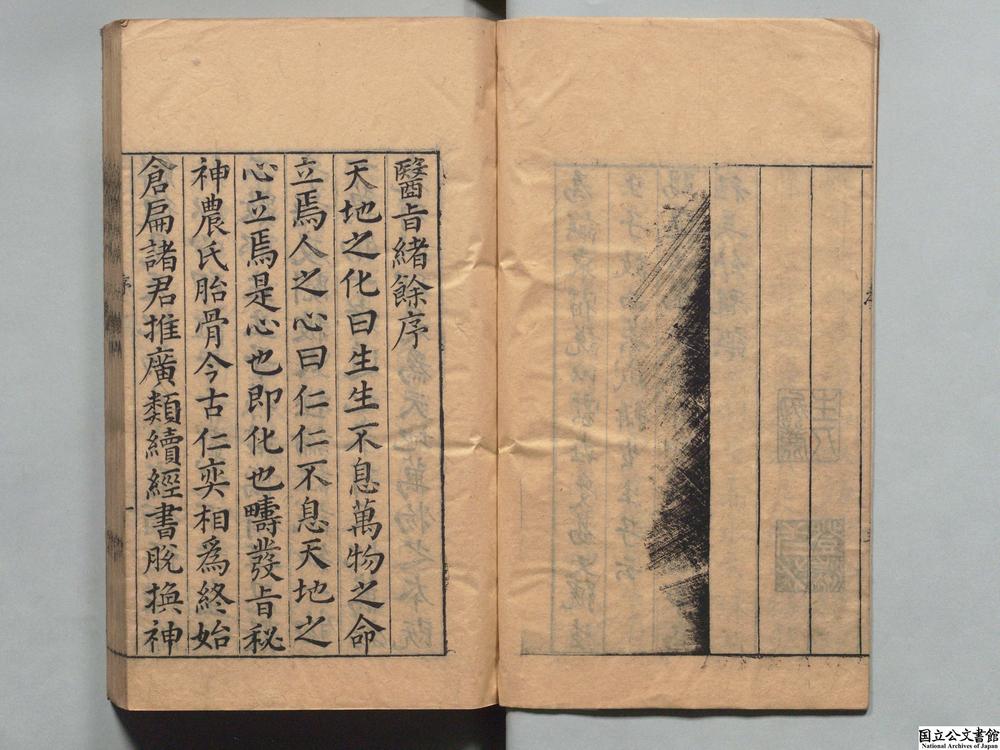 醫旨緒餘序
天地之化曰生生不息萬物之命
立焉人之心曰仁仁不息天地之
心立焉是心也即化也疇發旨秘
神農氏胎骨今古仁奕相爲終始
倉扁諸君推廣類續經書脫換神
序
一
国立公文書館
National Archives of Japan